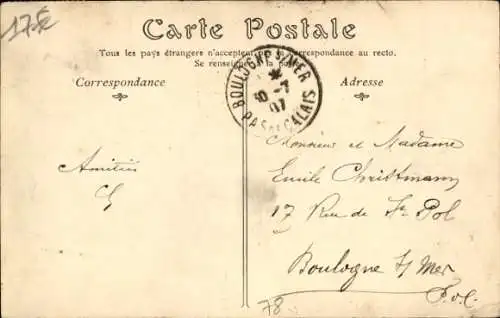 175
Carte Postale
Tous les pays étrangers n'acceptent pas la correspondance au recto.
Se renseigner à la poste
Correspondance
Adresse
BOULOGNE S MER
30 -7
07
PAS DE CALAIS
Amitiés
Monsieur et Madame
Emile Christmann
17 Rue de St Pol
Boulogne s/ Mer
P. d. C.
78